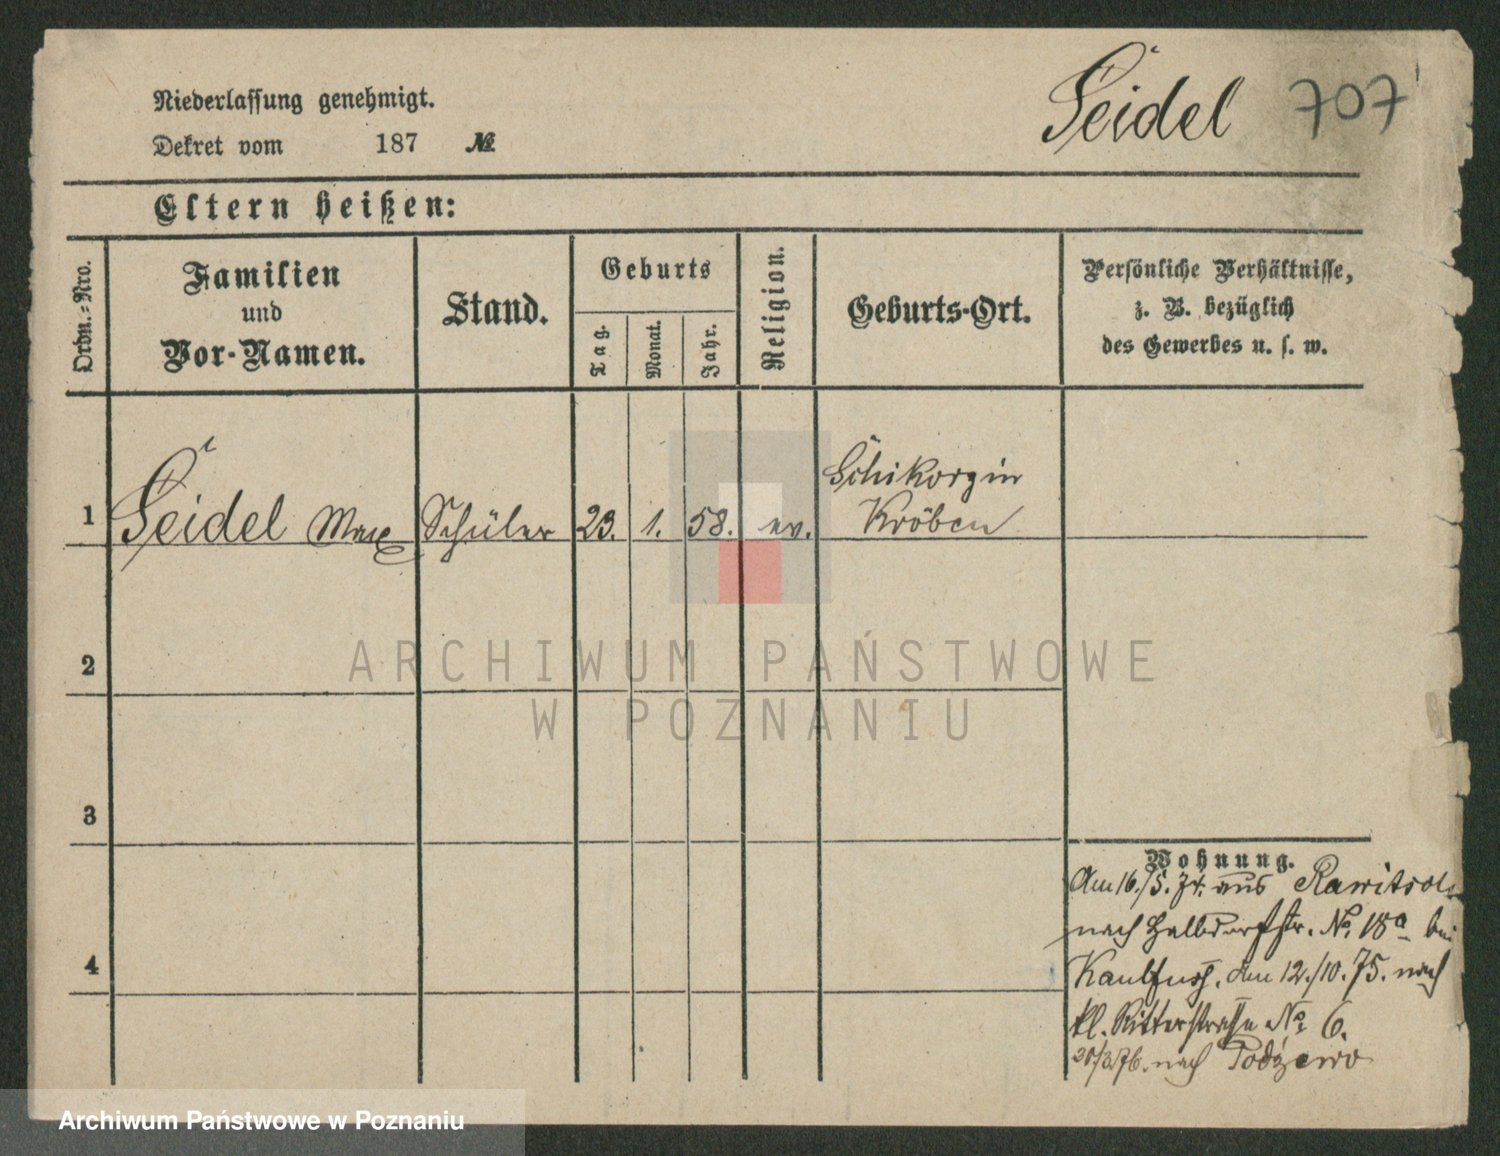 Niederlassung genehmigt.
Dekret vom 187 №
Seidel 707
Eltern heißen:
Ordn.-Nro.
Familien
und
Vor-Namen.
Stand.
Geburts
Tag.
Monat.
Jahr.
Religion.
Geburts-Ort.
Persönliche Verhältnisse,
z. B. bezüglich
des Gewerbes u. s. w.
1 Seidel Max Schüler 23. 1. 58. ev.
Schikorzin
Kröben
2
3
4
Wohnung.
Am 16./5. 74. aus Rawitsch
nach Halbdorfstr. No. 18a bei
Kaulfuss. Am 12./10. 75. nach
kl. Ritterstraße No 6.
nach
ARCHIWUM PAŃSTWOWE
W POZNANIU
Archiwum Państwowe w Poznaniu